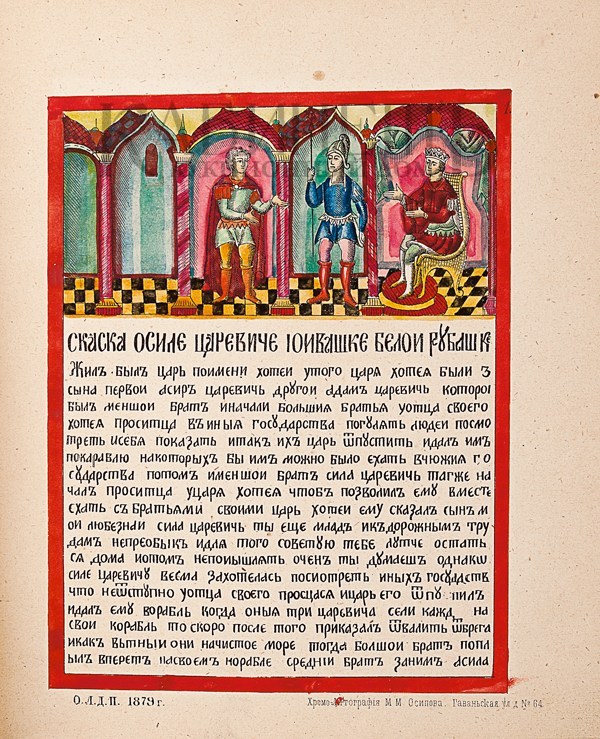 СКАСКА ОСИЛЕ ЦАРЕВИЧЕ IОИВАШКЕ БЕЛОИ РУБАШКѢ
Жилъ былъ царь поимени хотеи утого царя хотея были 3
сына первои асиръ царевичь другои адамъ царевичь которои
былъ меншои братъ иначали болшия братья уотца своего
хотея проситца въ иныя государства погулять людеи посмо
треть исебя показать итакъ ихъ царь ѿпустить идалъ имъ
покараблю накоторыхъ бы имъ можно было ехать вчюжия г,о
сударства потомъ именшои братъ сила царевичь тагже на
чалъ проситца уцаря хотея чтобъ позволилъ ему вместе
ехать сбратьями своими царь хотеи ему сказалъ сынъ м
ои любезнаи сила царевичь ты еще младъ икъдорожнымъ тру
дамъ непреобыкъ идля того советую тебе лутче остать
ся дома иотомъ непоышлять оченъ ты думаешъ однако
силе царевичу весма захотелась посмотреть иныхъ госуддств
что неѿступно уотца своего просился ицарь его ѿпу пилъ
идалъ ему ворабль когда оныя три царевича сели кажд на
свои корабль то скоро после того приказалъ ѿвалить ѿбрега
икакъ вытныи они начистое море тогда болшои братъ попл
ылъ вперетъ насвоемъ норабле среднiи братъ занимъ асила
О.Л.Д.П. 1879 г.
Хромо-Литографiя М М. Осипова. Гаваньская ул д № 64